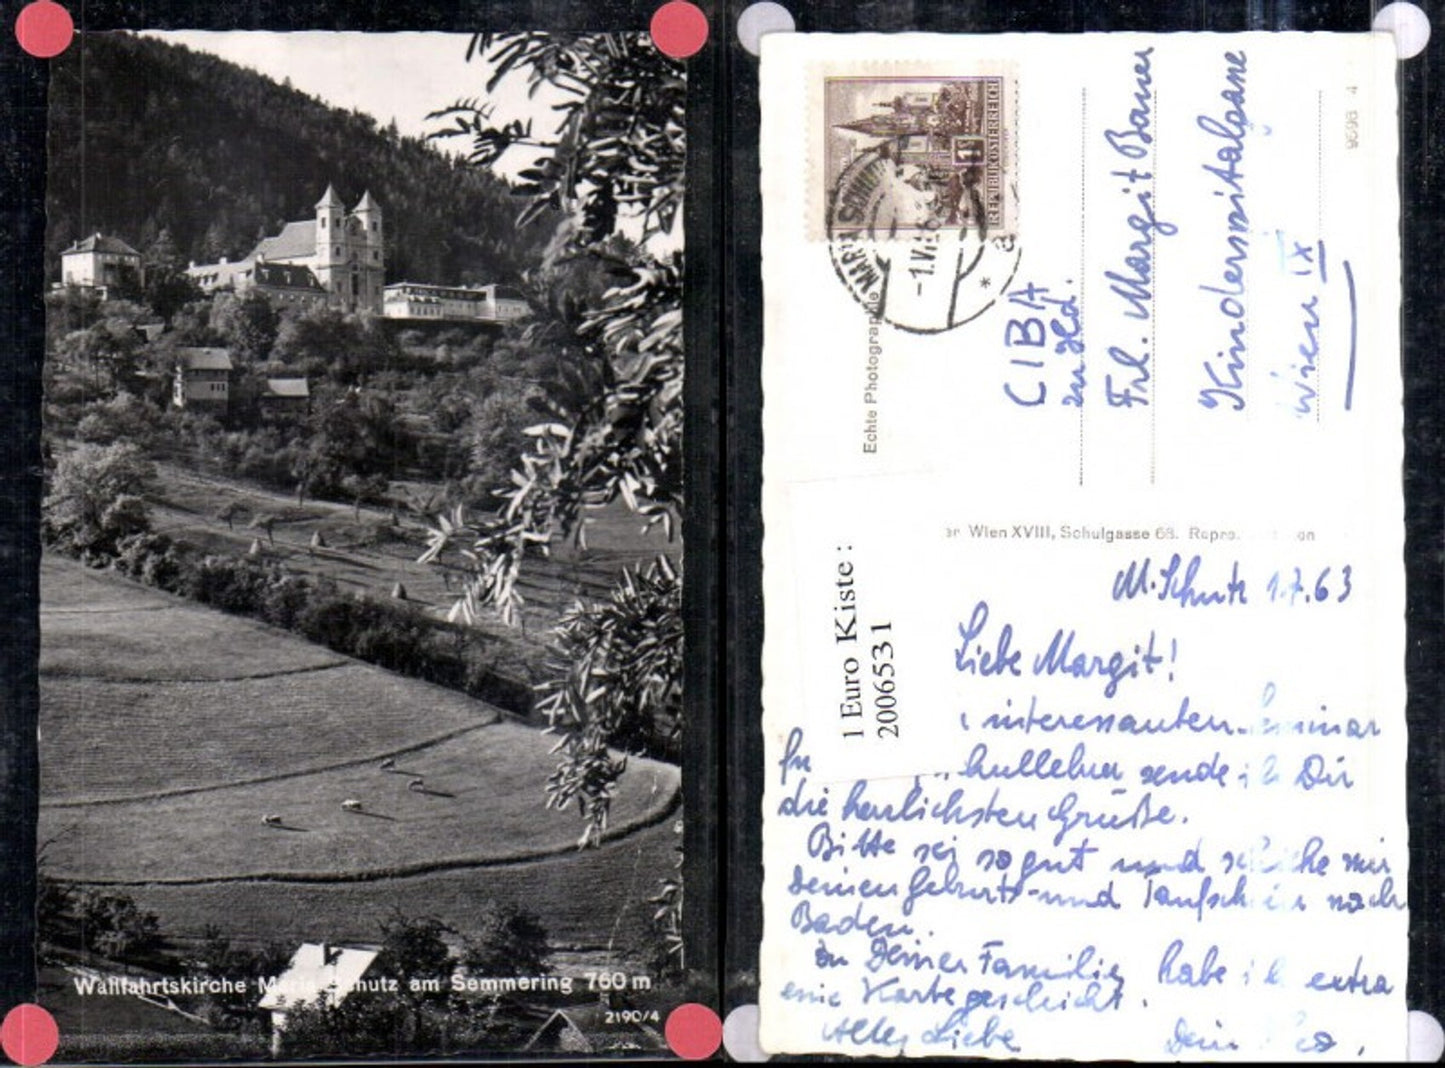 Wallfahrtskirche Maria Schutz am Semmering 760 m
2190/4
REPUBLIK ÖSTERREICH
1S
MARIA SCHUTZ
-1.VII.63
a
*
Echte Photographie
9598 4
CIBA
zu Hd.
Frl. Margit Bauer
Kinderspitalgasse
Wien IX
Wien XVIII, Schulgasse 68.
1 Euro Kiste :
2006531
M. Schutz 1.7.63
Liebe Margit!
interessanten Seminar
sende ich Dir
die herzlichsten Grüße.
Bitte sei so gut und schicke mir
Deinen Geburts- und Taufschein nach
Baden.
An Deiner Familie habe ich extra
eine Karte geschickt.
Alles Liebe Dein